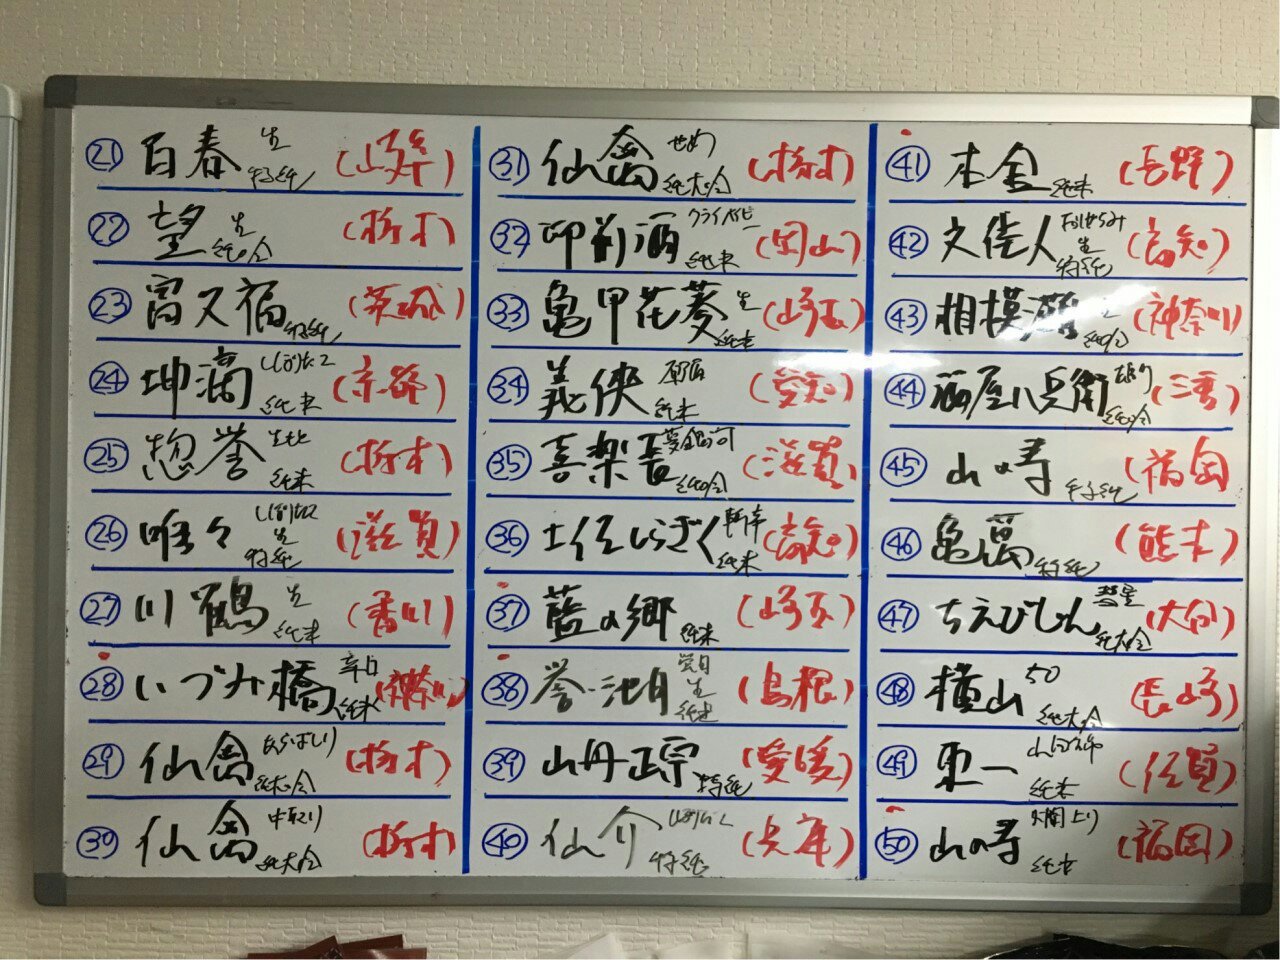 ㉑ 百春 生 特純 (岐阜)
㉒ 望 生 純吟 (栃木)
㉓ 富久福 特純 (茨城)
㉔ 坤滴 しぼりたて 純米 (京都)
㉕ 惣誉 生酛 純米 (栃木)
㉖ 唯々 しぼりたて 生 特純 (滋賀)
㉗ 川鶴 生 純米 (香川)
㉘ いづみ橋 辛口 純米 (神奈川)
㉙ 仙禽 あらばしり 純大吟 (栃木)
㉚ 仙禽 中取り 純大吟 (栃木)
㉛ 仙禽 せめ 純大吟 (栃木)
㉜ 御前酒 純米 (岡山)
㉝ 亀甲花菱 生 純米 (埼玉)
㉞ 義侠 原酒 純米 (愛知)
㉟ 喜楽長 夢銀河 純吟 (滋賀)
㊱ 土佐しらぎく 斬辛 純米 (高知)
㊲ 藍の郷 純米 (埼玉)
㊳ 誉池月 生 純米 (島根)
㊴ 山丹正宗 特純 (愛媛)
㊵ 仙介 しぼりたて 特純 (兵庫)
㊶ 本金 純米 (長野)
㊷ 文佳人 おりがらみ 生 特純 (高知)
㊸ 相模灘 生 純吟 (神奈川)
㊹ 酒屋八兵衛 純吟 (三重)
㊺ 山の寿 特純 (福岡)
㊻ 亀萬 特純 (熊本)
㊼ ちえびじん 彗星 純大吟 (大分)
㊽ 横山 50 純大吟 (長崎)
㊾ 東一 山田錦 純米 (佐賀)
㊿ 山の寿 燗上り 純米 (福岡)